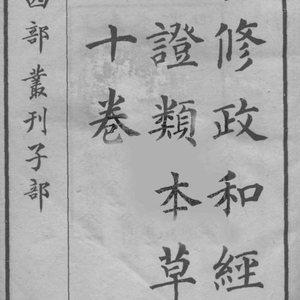 修政和經
證類本草
十卷
四部叢刊子部